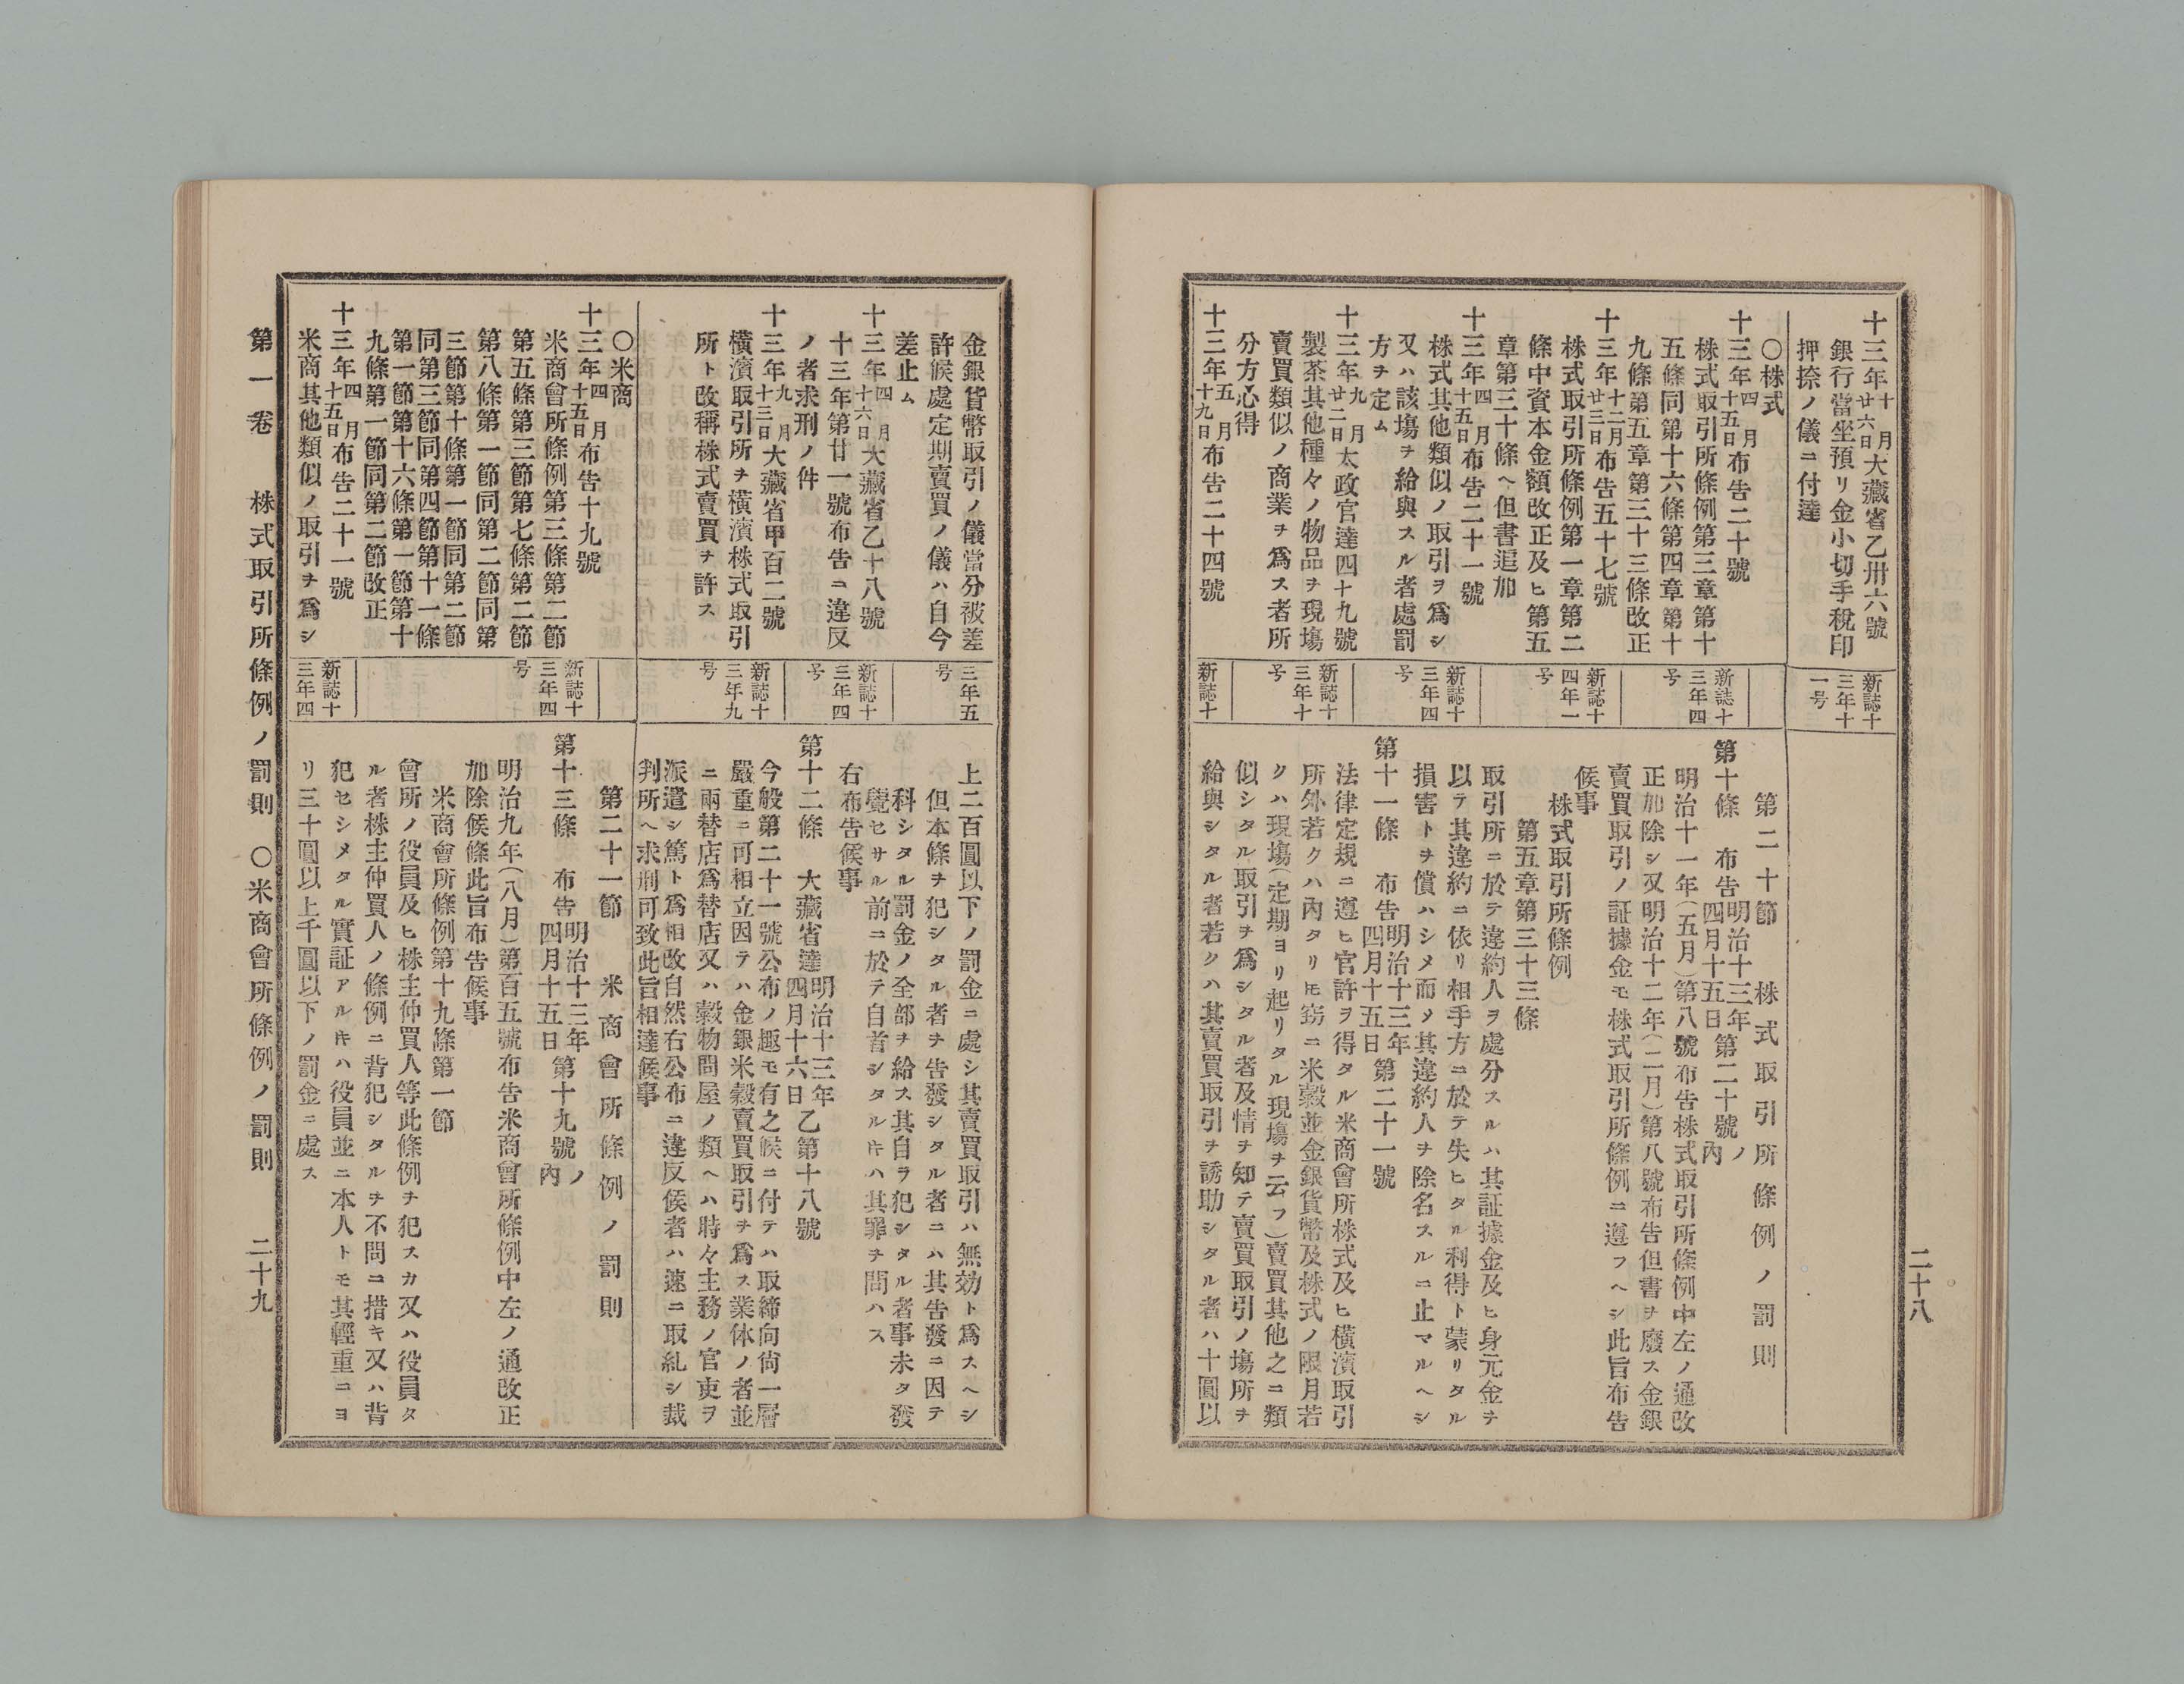 二十八
十三年十月廿六日大藏省乙卅六號
銀行當坐預リ金小切手稅印
押捺ノ儀ニ付達
〇株式
十三年四月十五日布告二十號
株式取引所條例第三章第十
五條同第十六條第四章第十
九條第五章第三十三條改正
十三年十二月廿三日布告五十七號
株式取引所條例第一章第二
條中資本金額改正及ヒ第五
章第三十條ヘ但書追加
十三年四月十五日布告二十一號
株式其他類似ノ取引ヲ爲シ
又ハ該塲ヲ給與スル者處罰
方ヲ定ム
十三年九月廿二日太政官達四十九號
製茶其他種々ノ物品ヲ現塲
賣買類似ノ商業ヲ爲ス者所
分方心得
十三年五月十九日布告二十四號
新誌十
三年十
一号
新誌十
三年四
号
新誌十
四年一
号
新誌十
三年四
号
新誌十
三年十
号
新誌十
第二十節　株式取引所條例ノ罰則
第十條　布告明治十三年四月十五日第二十號ノ內
明治十一年（五月）第八號布告株式取引所條例中左ノ通改
正加除シ又明治十二年（二月）第八號布告但書ヲ廢ス金銀
賣買取引ノ証據金モ株式取引所條例ニ遵フヘシ此旨布告
候事
株式取引所條例
第五章第三十三條
取引所ニ於テ違約人ヲ處分スルハ其証據金及ヒ身元金ヲ
以テ其違約ニ依リ相手方ニ於テ失ヒタル利得ト蒙リタル
損害トヲ償ハシメ而メ其違約人ヲ除名スルニ止マルヘシ
第十一條　布告明治十三年四月十五日第二十一號
法律定規ニ遵ヒ官許ヲ得タル米商會所株式及ヒ橫濱取引
所外若クハ內タリトモ窃ニ米穀並金銀貨幣及株式ノ限月若
クハ現塲（定期ヨリ起リタル現塲ヲ云フ）賣買其他之ニ類
似シタル取引ヲ爲シタル者及情ヲ知テ賣買取引ノ塲所ヲ
給與シタル者若クハ其賣買取引ヲ誘助シタル者ハ十圓以
金銀貨幣取引ノ儀當分被差
許候處定期賣買ノ儀ハ自今
差止ム
十三年四月十六日大藏省乙十八號
十三年第廿一號布告ニ違反
ノ者求刑ノ件
十三年九月十三日大藏省甲百二號
橫濱取引所ヲ橫濱株式取引
所ト改稱株式賣買ヲ許ス
〇米商
十三年四月十五日布告十九號
米商會所條例第三條第二節
第五條第三節第七條第二節
第八條第一節同第二節同第
三節第十條第一節同第二節
同第三節同第四節第十一條
第一節第十六條第一節第十
九條第一節同第二節改正
十三年四月十五日布告二十一號
米商其他類似ノ取引ヲ爲シ
三年五
号
新誌十
三年四
号
新誌十
三年九
号
新誌十
三年四
号
新誌十
三年四
上二百圓以下ノ罰金ニ處シ其賣買取引ハ無効ト爲スヘシ
但本條ヲ犯シタル者ヲ告發シタル者ニハ其告發ニ因テ
科シタル罰金ノ全部ヲ給ス其自ラ犯シタル者事未タ發
覺セサル前ニ於テ自首シタルトキハ其罪ヲ問ハス
右布告候事
第十二條　大藏省達明治十三年四月十六日乙第十八號
今般第二十一號公布ノ趣モ有之候ニ付テハ取締向尙一層
嚴重ニ可相立因テハ金銀米穀賣買取引ヲ爲ス業体ノ者並
ニ兩替店爲替店又ハ穀物問屋ノ類ヘハ時々主務ノ官吏ヲ
派遣シ篤ト爲相改自然右公布ニ違反候者ハ速ニ取糺シ裁
判所ヘ求刑可致此旨相達候事
第二十一節　米商會所條例ノ罰則
第十三條　布告明治十三年四月十五日第十九號ノ內
明治九年（八月）第百五號布告米商會所條例中左ノ通改正
加除候條此旨布告候事
米商會所條例第十九條第一節
會所ノ役員及ヒ株主仲買人等此條例ヲ犯スカ又ハ役員タ
ル者株主仲買人ノ條例ニ背犯シタルヲ不問ニ措キ又ハ背
犯セシメタル實証アルトキハ役員並ニ本人トモ其輕重ニヨ
リ三十圓以上千圓以下ノ罰金ニ處ス
第一卷　株式取引所條例ノ罰則　〇米商會所條例ノ罰則　二十九